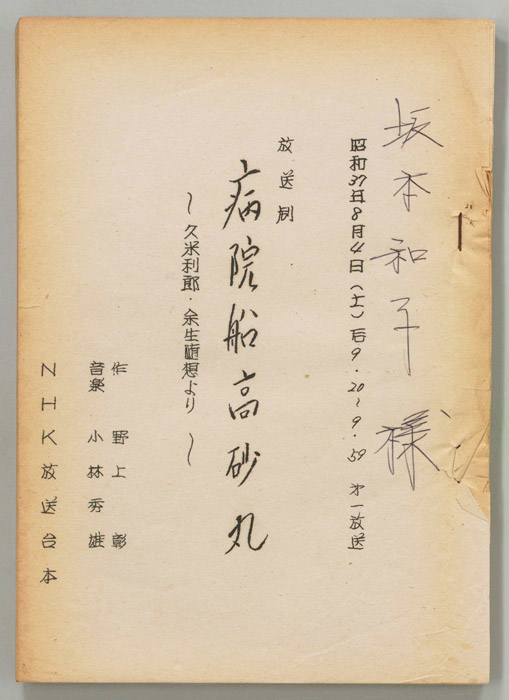 坂本和子様
昭和37年8月4日(土)后9・20~9・59 第一放送
放送劇
病院船高砂丸
~久米利郎・余生随想より~
作 野上彰
音楽 小林秀雄
NHK放送台本